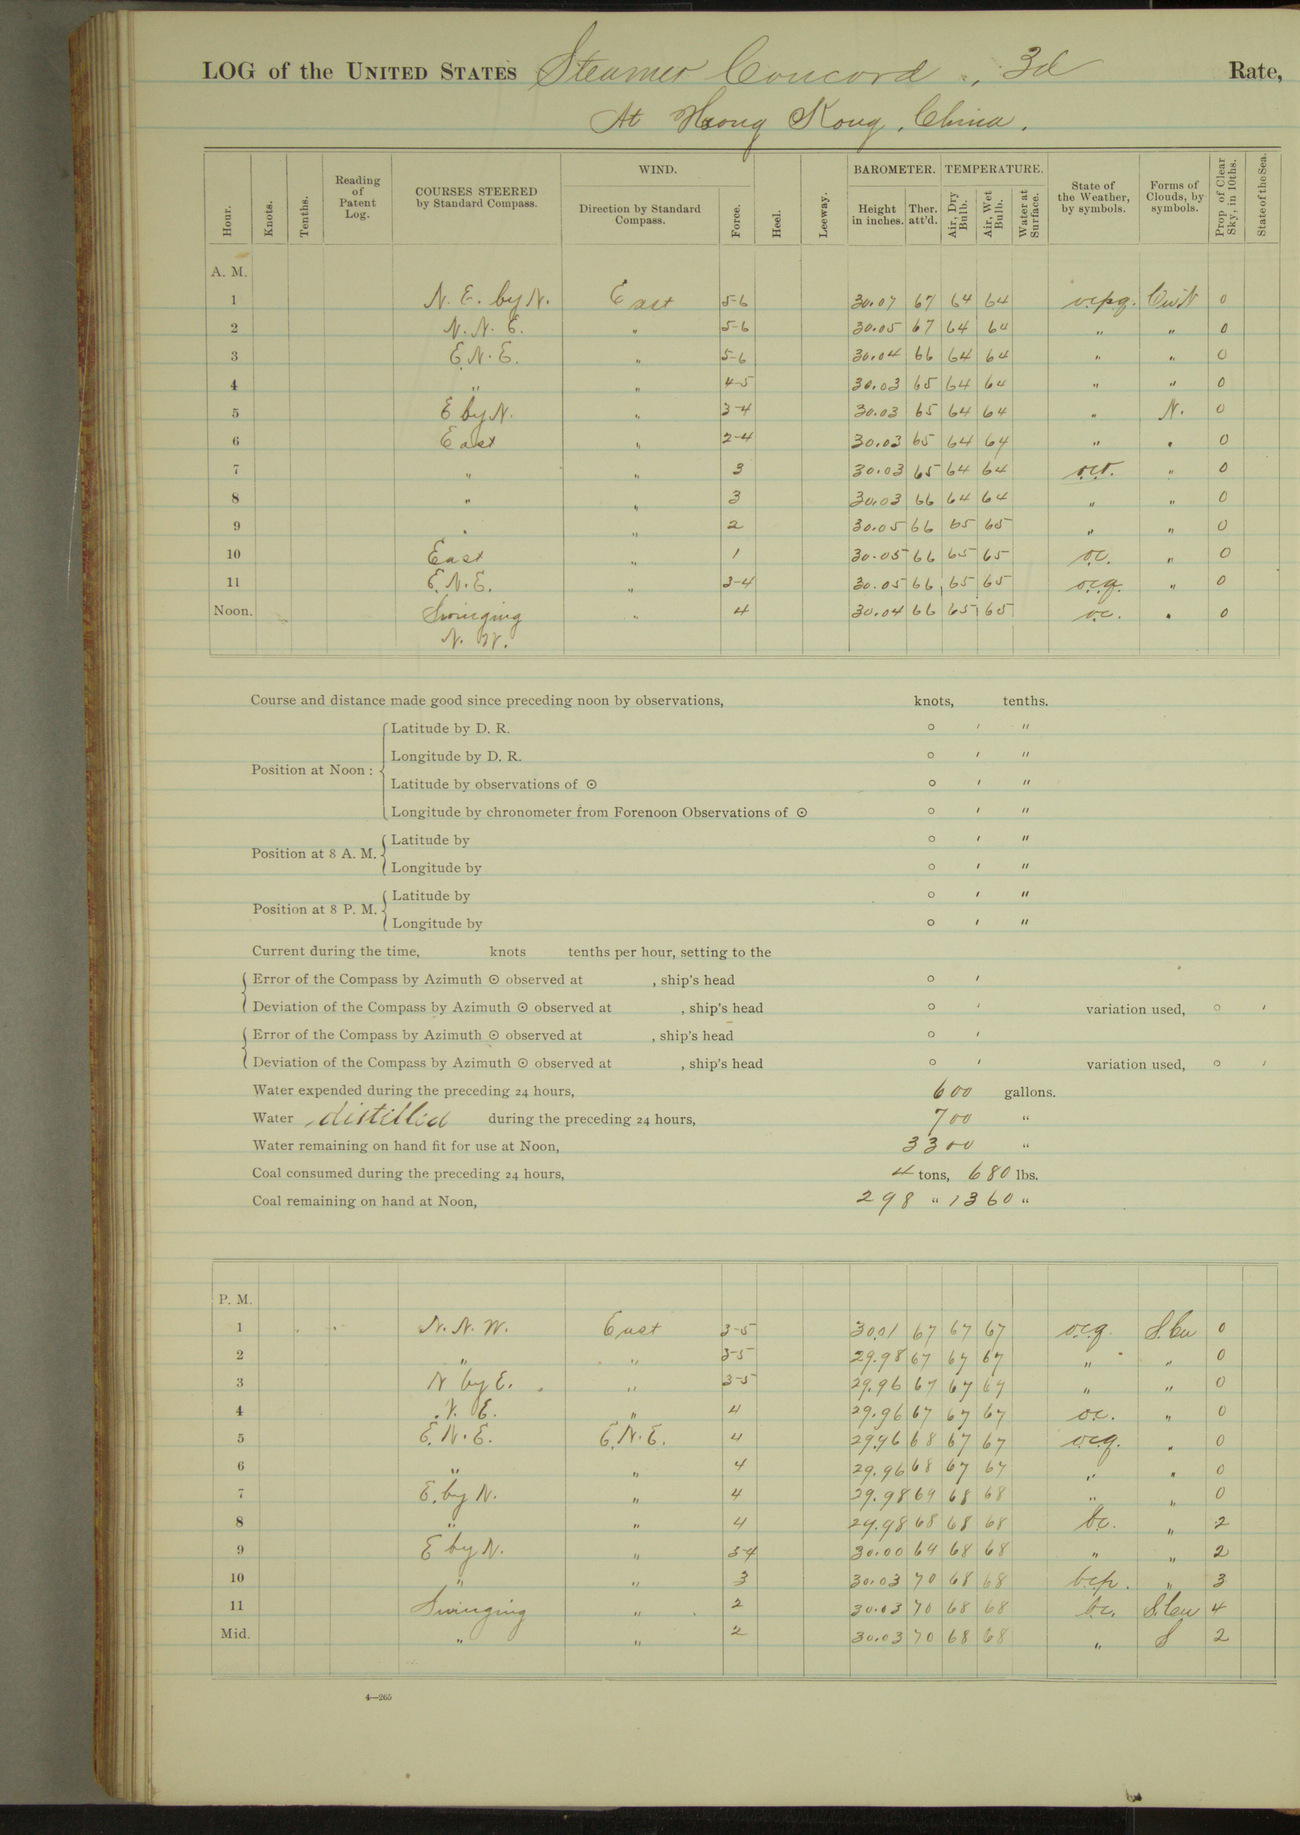 LOG of the UNITED STATES Steamer Concord, 3d Rate,
At Hong Kong, China.
Hour. Knots. Tenths. Reading of Patent Log. COURSES STEERED by Standard Compass. WIND. Direction by Standard Compass. Force. Heel. Leeway. BAROMETER. Height in inches. Ther. att'd. TEMPERATURE. Air, Dry Bulb. Air, Wet Bulb. Water at Surface. State of the Weather, by symbols. Forms of Clouds, by symbols. Prop. of Clear Sky, in 10ths. State of the Sea.
A. M.
1 N. E. by N. East 5-6 30.07 67 64 64 o.c.p.q. CuN 0
2 N. N. E. " 5-6 30.05 67 64 64 " " 0
3 E. N. E. " 5-6 30.04 66 64 64 " " 0
4 " " 4-5 30.03 65 64 64 " " 0
5 E by N. " 3-4 30.03 65 64 64 " N. 0
6 East " 2-4 30.03 65 64 64 " " 0
7 " " 3 30.03 65 64 64 " 0
8 " " 3 30.03 66 64 64 " " 0
9 " " 2 30.05 66 65 65 " " 0
10 East " 1 30.05 66 65 65 o.c. " 0
11 E. N. E. " 3-4 30.05 66 65 65 o.c.q. " 0
Noon. Swinging " 4 30.04 66 65 65 o.c. " 0
N. W.
Course and distance made good since preceding noon by observations, knots, tenths.
Position at Noon: Latitude by D. R. ° ′ ″
Longitude by D. R. ° ′ ″
Latitude by observations of ⊙ ° ′ ″
Longitude by chronometer from Forenoon Observations of ⊙ ° ′ ″
Position at 8 A. M. Latitude by ° ′ ″
Longitude by ° ′ ″
Position at 8 P. M. Latitude by ° ′ ″
Longitude by ° ′ ″
Current during the time, knots tenths per hour, setting to the
Error of the Compass by Azimuth ⊙ observed at , ship's head ° ′
Deviation of the Compass by Azimuth ⊙ observed at , ship's head ° ′ variation used, ° ′
Error of the Compass by Azimuth ⊙ observed at , ship's head ° ′
Deviation of the Compass by Azimuth ⊙ observed at , ship's head ° ′ variation used, ° ′
Water expended during the preceding 24 hours, 600 gallons.
Water distilled during the preceding 24 hours, 700 "
Water remaining on hand fit for use at Noon, 3300 "
Coal consumed during the preceding 24 hours, 4 tons, 680 lbs.
Coal remaining on hand at Noon, 298 " 1360 "
P. M.
1 N. N. W. East 3-5 30.01 67 67 67 o.c.q. S.Cu 0
2 " " 3-5 29.98 67 67 67 " " 0
3 N by E. " 3-5 29.96 67 67 67 " " 0
4 N. E. " 4 29.96 67 67 67 o.c. " 0
5 E. N. E. E. N. E. 4 29.96 68 67 67 o.c.q. " 0
6 " " 4 29.96 68 67 67 " " 0
7 E. by N. " 4 29.98 69 68 68 " " 0
8 " " 4 29.98 68 68 68 b.c. " 2
9 E by N. " 3-4 30.00 69 68 68 " " 2
10 " " 3 30.03 70 68 68 b.c.p. " 3
11 Swinging " 2 30.03 70 68 68 b.c. S.Cu 4
Mid. " " 2 30.03 70 68 68 " S 2
4—265